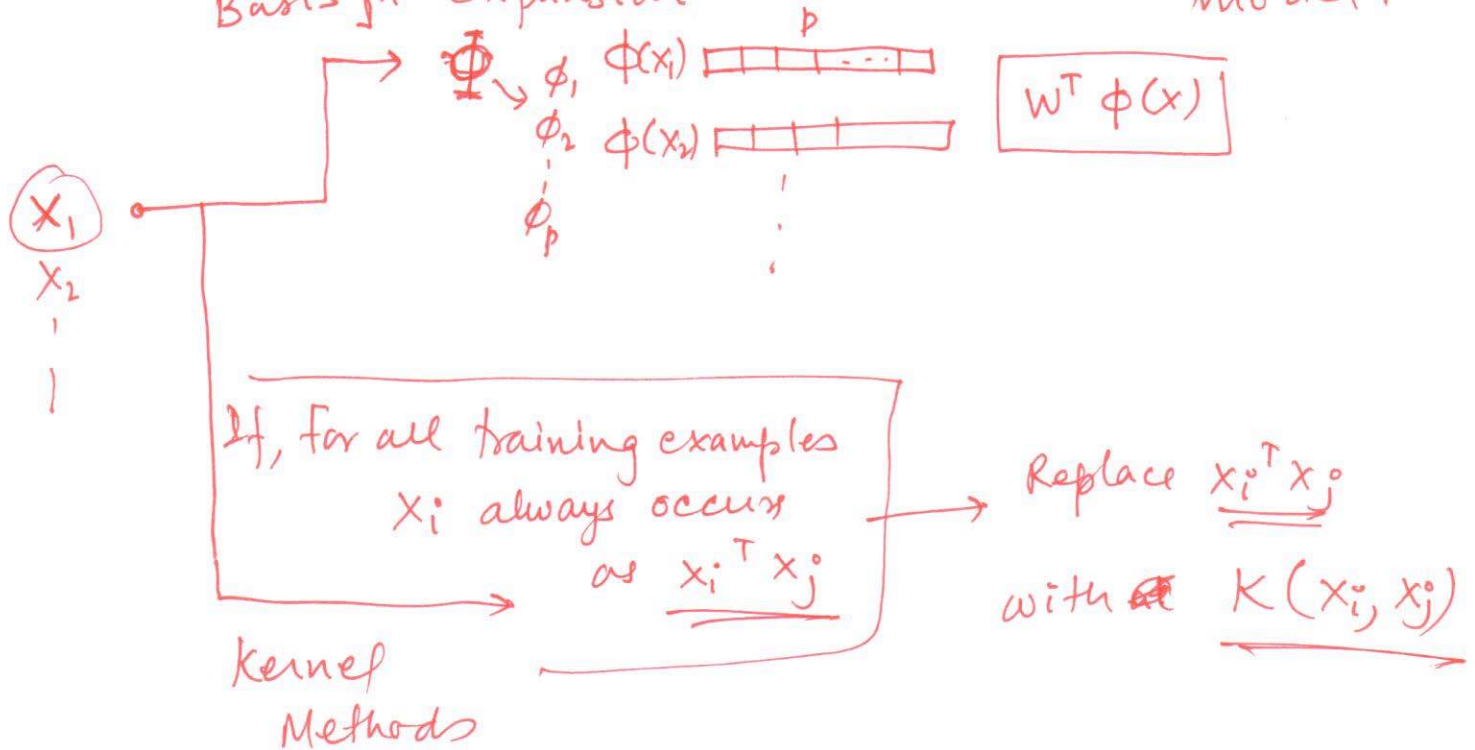 Basis fn expansion
Model:
p
Φ ϕ₁ ϕ(x₁) ...
ϕ₂ ϕ(x₂)
ϕₚ
Wᵀ ϕ(x)
X₁
X₂
If, for all training examples
xᵢ always occurs
as xᵢᵀ xⱼ
Replace xᵢᵀ xⱼ
with K(xᵢ, xⱼ)
Kernel
Methods